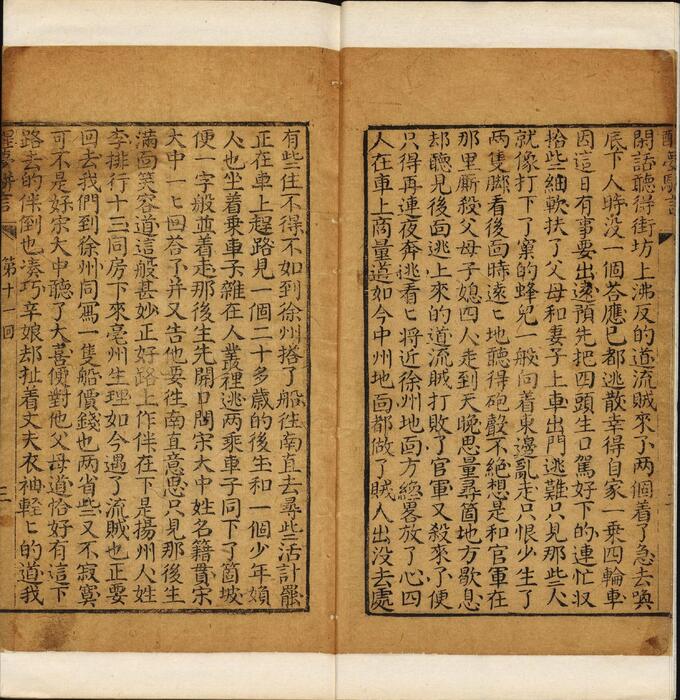 醒夢駢言
閙話聽得街坊上沸反的道流賊來了兩個着了急去喚
底下人時没一個荅應已都逃散幸得自家一乗四輪車
因這日有事要出逺預先把四頭生口駕好下的連忙収
拾些細軟扶了父母和妻子上車出門逃難只見那些人
就像打下了窠的蜂兒一般向着東邊亂走只恨少生了
兩隻脚看後面時逺〻地聽得砲聲不絕想是和官軍在
那里厮殺父母子媳四人走到天晚思量尋箇地方歇息
却聽見後面逃上來的道流賊打敗了官軍又殺來了便
只得再連夜奔逃看〻將近徐州地面方纔畧放了心四
人在車上商量道如今中州地面都做了賊人出没去處
有些住不得不如到徐州搭了船往南直去尋些活計罷
正在車上趕路見一個二十多歲的後生和一個少年婦
人也坐着乗車子雜在人叢裡逃兩乘車子同下了箇坡
便一字般並着走那後生先開口問宋大中姓名籍貫宋
大中一〻回荅了并又告他要往南直意思只見那後生
滿面笑容道這般甚妙正好路上作伴在下是揚州人姓
李排行十三同房下來亳州生理如今遇了流賊也正要
回去我們到徐州同寫一隻船價錢也兩省些又不寂寞
可不是好宋大中聽了大喜便對他父母道恰好有這下
路去的伴倒也凑巧辛娘却扯着丈夫衣袖輕〻的道我
醒夢駢言 第十一回 三